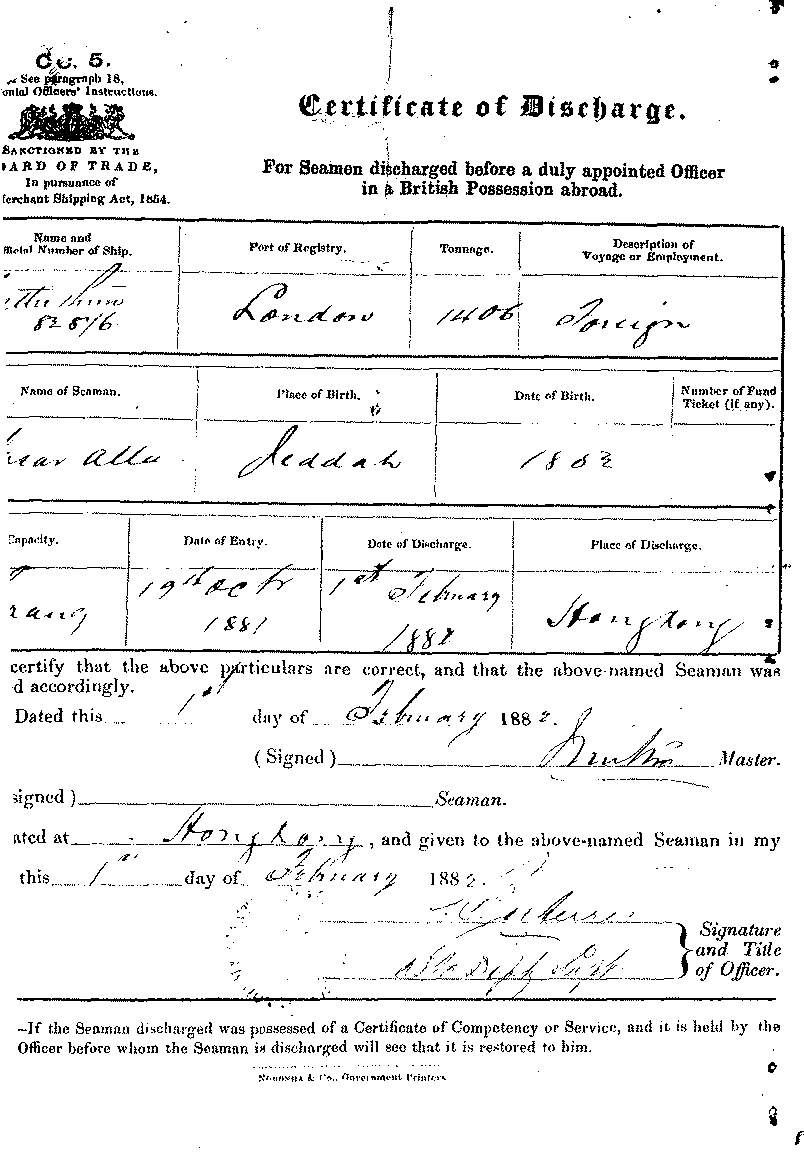 CC. 5.
See paragraph 18,
onial Officers' Instructions.
SANCTIONED BY THE
OARD OF TRADE,
In pursuance of
erchant Shipping Act, 1854.
Certificate of Discharge.
For Seamen discharged before a duly appointed Officer
in a British Possession abroad.
Name and
fficial Number of Ship.
Port of Registry.
Tonnage.
Description of
Voyage or Employment.
82876
London
1406
Foreign
Name of Seaman.
Place of Birth.
Date of Birth.
Number of Fund
Ticket (if any).
Alla
Jeddah
Capacity.
Date of Entry.
Date of Discharge.
Place of Discharge.
rang
19th Octr
1881
1st February
1882
Hongkong
certify that the above particulars are correct, and that the above-named Seaman was
d accordingly.
Dated this 1st day of February 1882.
(Signed) Master.
signed) Seaman.
ated at Hongkong, and given to the above-named Seaman in my
this 1st day of February 1882.
Signature
and Title
of Officer.
—If the Seaman discharged was possessed of a Certificate of Competency or Service, and it is held by the
Officer before whom the Seaman is discharged will see that it is restored to him.
NORONHA & Co., Government Printers